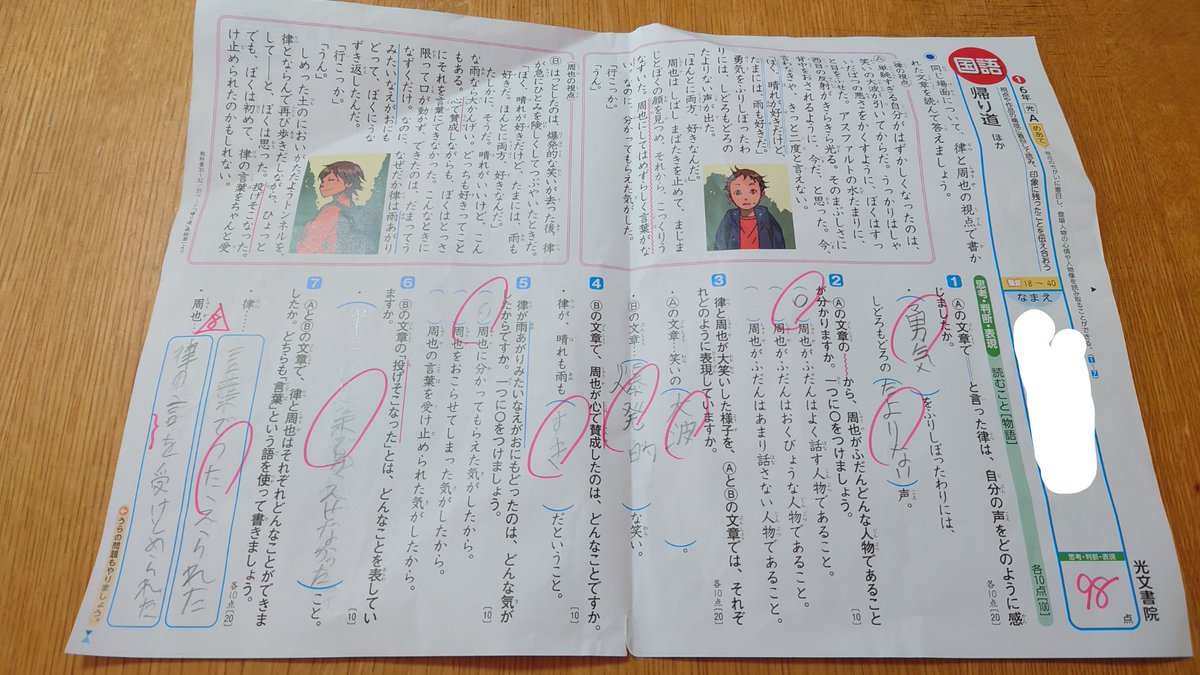 国語
1 6年 光 A めあて 視点や作品の構成に着目して読み、印象に残ったことを伝え合おう
帰り道 ほか
18~40
なまえ
光文書院
思考・判断・表現
98点
● 同じ場面について、律と周也の視点で書かれた文章を読んで答えましょう。
律の視点
Ⓐ 単純すぎる自分がはずかしくなったのは、
笑いの大波が引いてからだ。うっかりはしゃ
いだばつの悪さをかくすように、ぼくはすっ
と目をふせた。アスファルトの水たまりに、
西日の反射がきらきら光る。そのまぶしさに
背中をおされるように、今だ、と思った。今、
言わなきゃ、きっと二度と言えない。
「ぼく、晴れが好きだけど、
たまには、雨も好きだ。
ほんとに両方、好きなんだ。」
勇気をふりしぼったわ
りには、しどろもどろの
たよりない声が出た。
周也はしばしまばたきを止めて、まじま
じとぼくの顔を見つめ、それから、こっくりう
なずいた。周也にしてはめずらしく言葉がな
い。なのに、分かってもらえた気がした。
「行こっか。」
「うん。」
周也の視点
Ⓑ はっとしたのは、爆発的な笑いが去った後、律
が急にひとみを険しくしてつぶやいたときだ。
「ぼく、晴れが好きだけど、たまには、雨も
好きだ。ほんとに両方、好きなんだ。」
たしかに、そうだ。晴れがいいけど、こん
な雨なら大かんげい。どっちも好きってこと
もある。心で賛成しながらも、ぼくはとっさ
にそれを言葉にできなかった。こんなときに
限って口が動かず、できたのは、だまってう
なずくだけ。なのに、なぜだか律は雨あがり
みたいなえがおにも
どって、ぼくにうな
ずき返したんだ。
「行こっか。」
「うん。」
しめった土のにおいがただようトンネルを、
律とならんで再び歩きだしながら、ひょっと
して――と、ぼくは思った。投げそこなった。
でも、ぼくは初めて、律の言葉をちゃんと受
け止められたのかもしれない。
思考・判断・表現 読むこと「物語」 各10点[100]
1 Ⓐの文章で――と言った律は、自分の声をどのように感
じましたか。 各10点[20]
・勇気をふりしぼったわりには、
しどろもどろのたよりない声。
2 Ⓐの文章の〰〰から、周也がふだんどんな人物であること
が分かりますか。一つに○をつけましょう。
○ 周也がふだんはよく話す人物であること。
周也がふだんはおくびょうな人物であること。
周也がふだんはあまり話さない人物であること。
3 律と周也が大笑いした様子を、ⒶとⒷの文章では、それぞ
れどのように表現していますか。 各10点[20]
・Ⓐの文章…笑いの(大波)。
・Ⓑの文章…(爆発的)な笑い。
4 Ⓑの文章で、周也が心で賛成したのは、どんなことですか。
・律が、晴れも雨も(すき)だということ。 [10]
5 律が雨あがりみたいなえがおにもどったのは、どんな気が
したからですか。一つに○をつけましょう。 [10]
○ 周也に分かってもらえた気がしたから。
周也をおこらせてしまった気がしたから。
周也の言葉を受け止められた気がしたから。
6 Ⓑの文章の「投げそこなった」とは、どんなことを表してい
ますか。 [10]
こと。
7 ⒶとⒷの文章で、律と周也はそれぞれどんなことができま
したか。どちらも「言葉」という語を使って書きましょう。 各10点[20]
・律… 言葉でつたえられた
・周也… 律の言を受けとめられた
うらの問題もやりましょう。